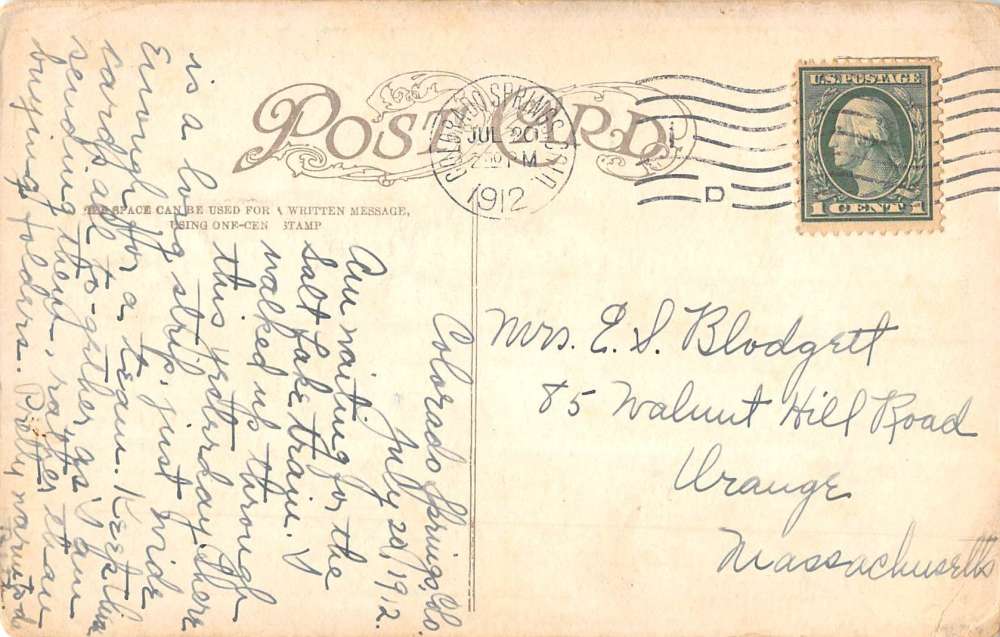 POST CARD
COLORADO SPRINGS
JUL 20
PM
1912
D
U.S. POSTAGE
1 CENT 1
SPACE CAN BE USED FOR A WRITTEN MESSAGE,
USING ONE-CEN STAMP
Colorado Springs, Colo
July 20, 1912.
Am waiting for the
Salt Lake train. I
walked up through
this yesterday. There
is a long strip, just wide
Enough for a team. Keep these
cards all to-gether, as I am
sending them, rather than
buying folders. Pretty
Mrs. E. S. Blodgett
85 Walnut Hill Road
Orange
Massachusetts